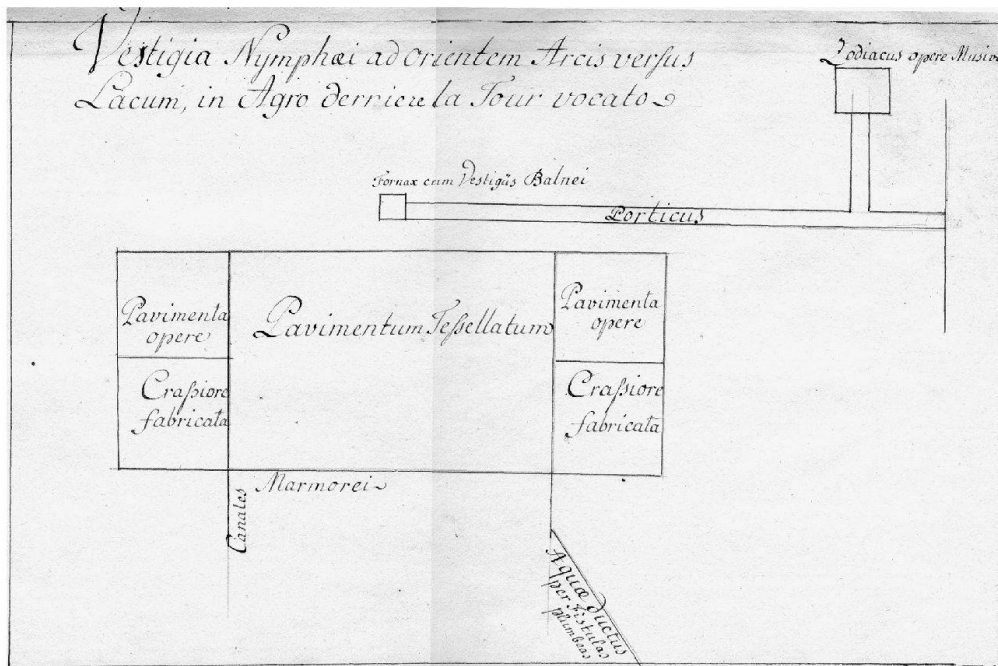 Vestigia Nymphæi ad orientem Arcis versus
Lacum, in Agro derriere la Tour vocato
Zodiacus opere Musivo
Fornax cum Vestigiis Balnei
Porticus
Pavimenta
opere
Pavimentum Tessellatum
Pavimenta
opere
Crassiore
fabricata
Crassiore
fabricata
Marmorei
Canales
Aquæ ductus
per fistulas
plumbeas